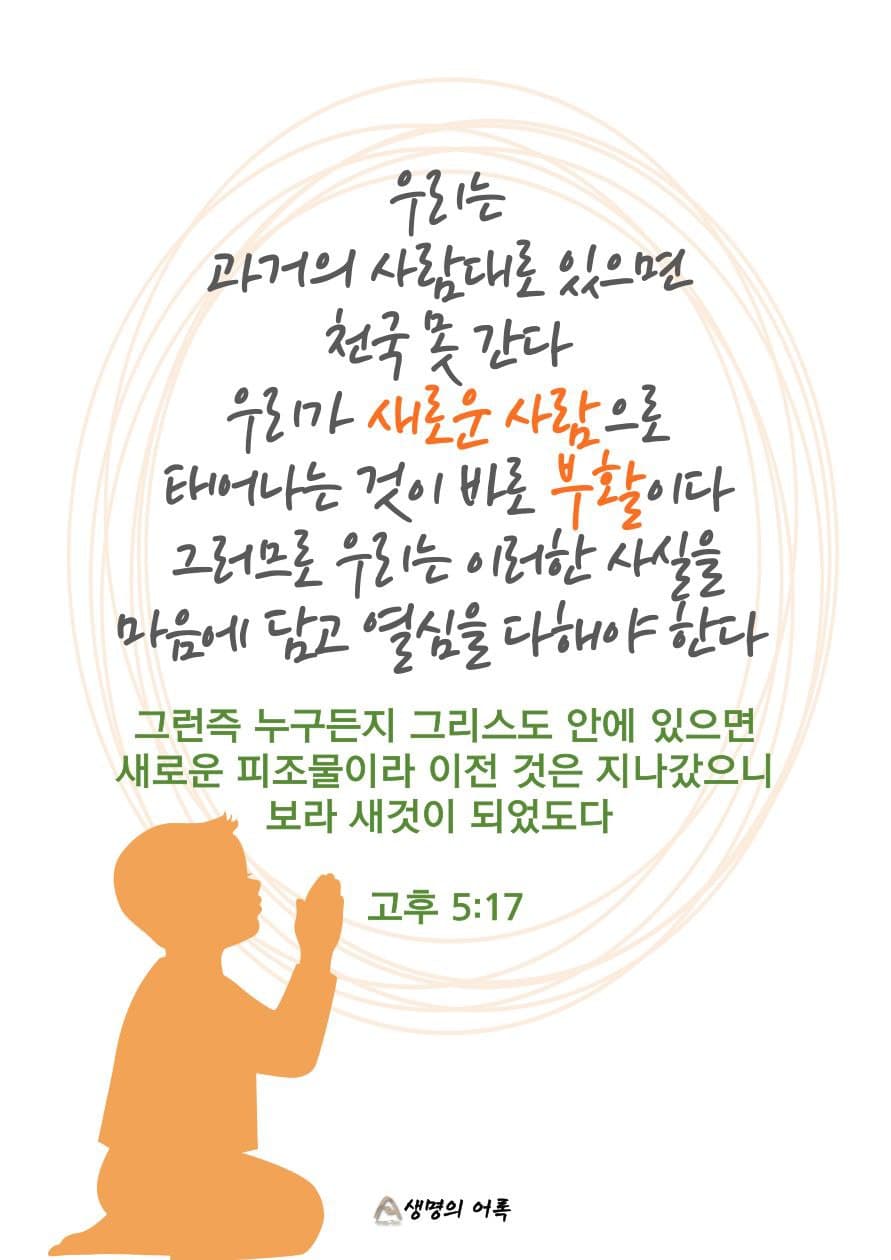 우리는
과거의 사람대로 있으면
천국 못 간다
우리가 새로운 사람으로
태어나는 것이 바로 부활이다
그러므로 우리는 이러한 사실을
마음에 담고 열심을 다해야 한다
그런즉 누구든지 그리스도 안에 있으면
새로운 피조물이라 이전 것은 지나갔으니
보라 새것이 되었도다
고후 5:17
생명의 어록